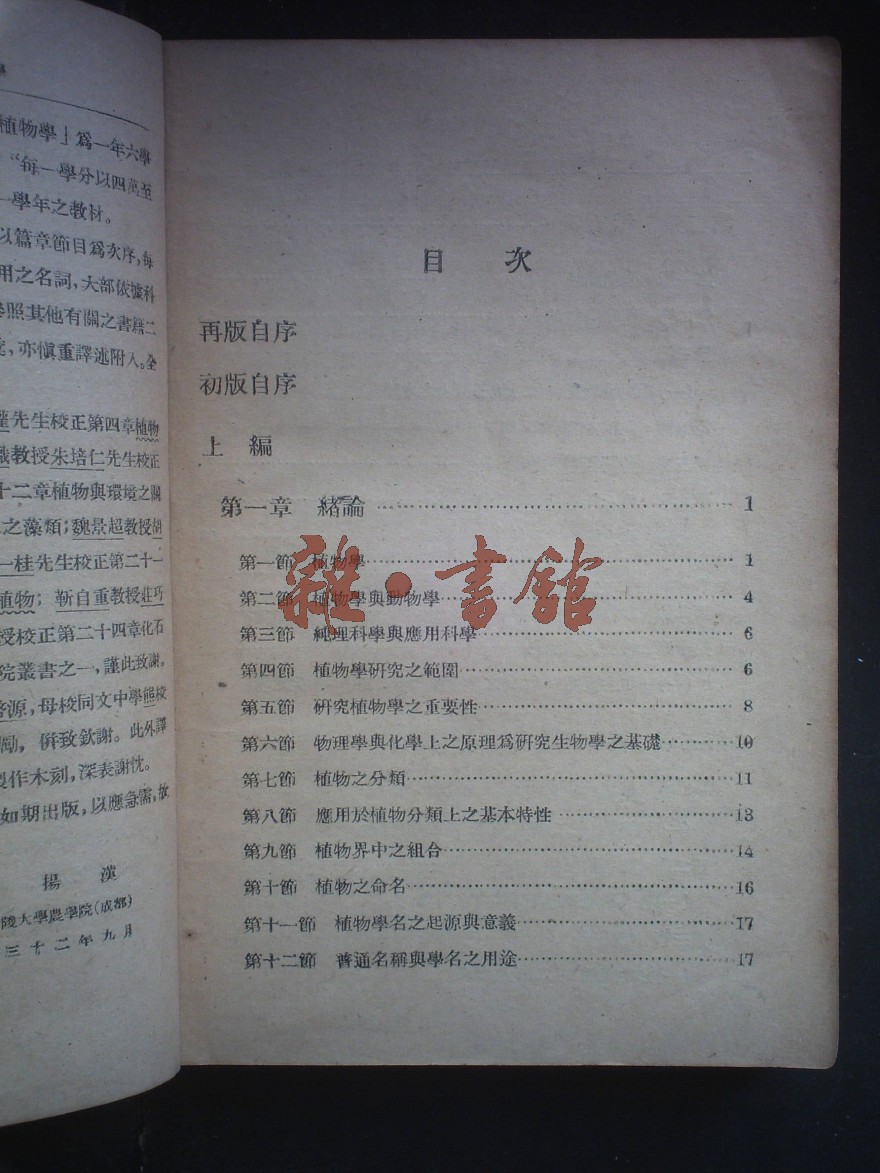 植物學」爲一年六學
“每一學分以四萬至
一學年之教材。
以篇章節目爲次序,每
用之名詞,大部依據科
參照其他有關之書籍二
亦愼重譯述附入。全
先生校正第四章植物
教授朱培仁先生校正
十二章植物與環境之關
之藻類;魏景超教授
一桂先生校正第二十一
植物;靳自重教授莊巧
授校正第二十四章化石
院叢書之一,謹此致謝。
源,母校同文中學熊校
勵,併致欽謝。此外譯
製作木刻,深表謝忱。
如期出版,以應急需,故
揚漢
陵大學農學院(成都)
三十二年九月
目次
再版自序
初版自序
上編
第一章 緒論 1
第一節 植物學 1
第二節 植物學與動物學 4
第三節 純理科學與應用科學 6
第四節 植物學研究之範圍 6
第五節 研究植物學之重要性 8
第六節 物理學與化學上之原理爲研究生物學之基礎 10
第七節 植物之分類 11
第八節 應用於植物分類上之基本特性 13
第九節 植物界中之組合 14
第十節 植物之命名 16
第十一節 植物學名之起源與意義 17
第十二節 普通名稱與學名之用途 17
雜·書館